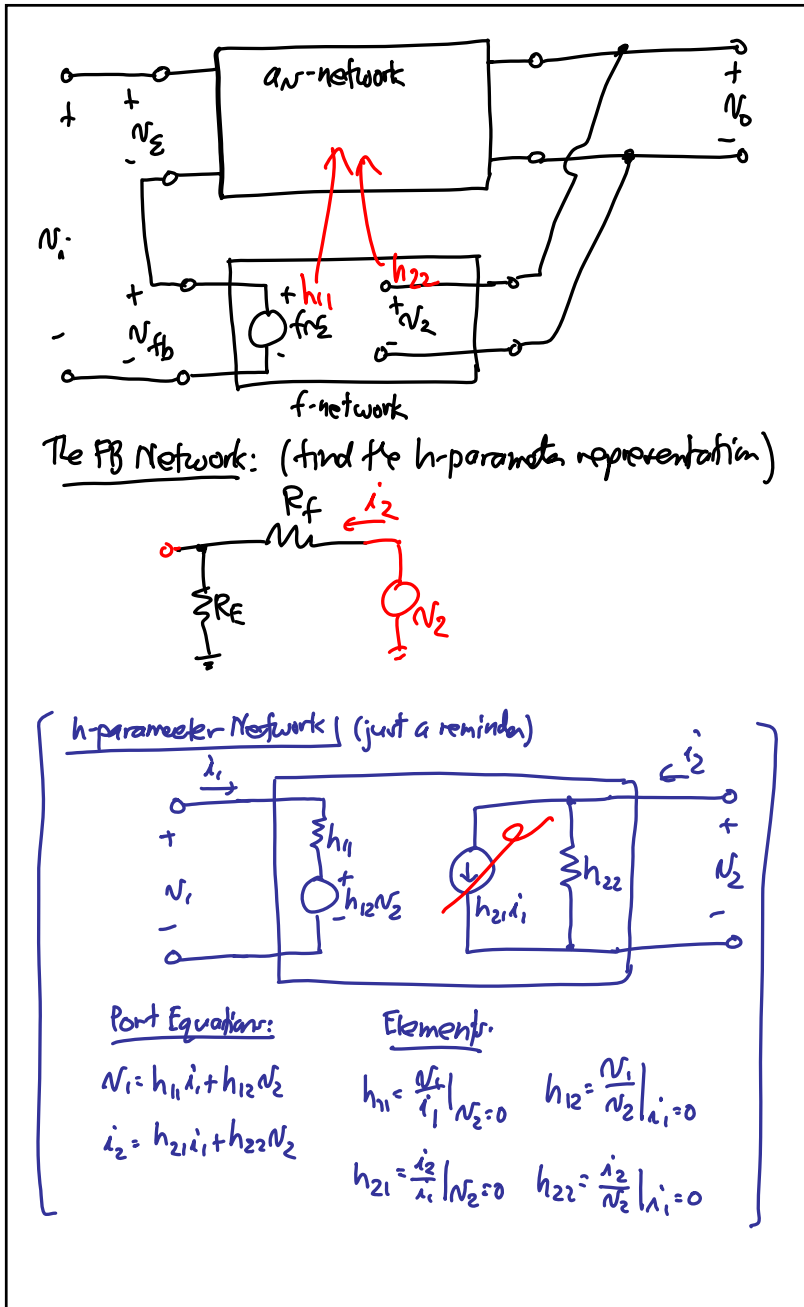 a_v-network
+
+
v_ε
-
+
v_o
-
v_i
h_11
h_22
+
v_fb
-
-
+
f v_ε
-
+
v_2
-
f-network
The FB Network: (find the h-parameter representation)
R_f
i_2
R_E
v_2
h-parameter Network (just a reminder)
i_1
i_2
+
v_1
-
h_11
+
h_12 v_2
-
h_21 i_1
h_22
+
v_2
-
Port Equations:
Elements:
v_1 = h_11 i_1 + h_12 v_2
i_2 = h_21 i_1 + h_22 v_2
h_11 = v_1/i_1 |v_2=0
h_12 = v_1/v_2 |i_1=0
h_21 = i_2/i_1 |v_2=0
h_22 = i_2/v_2 |i_1=0